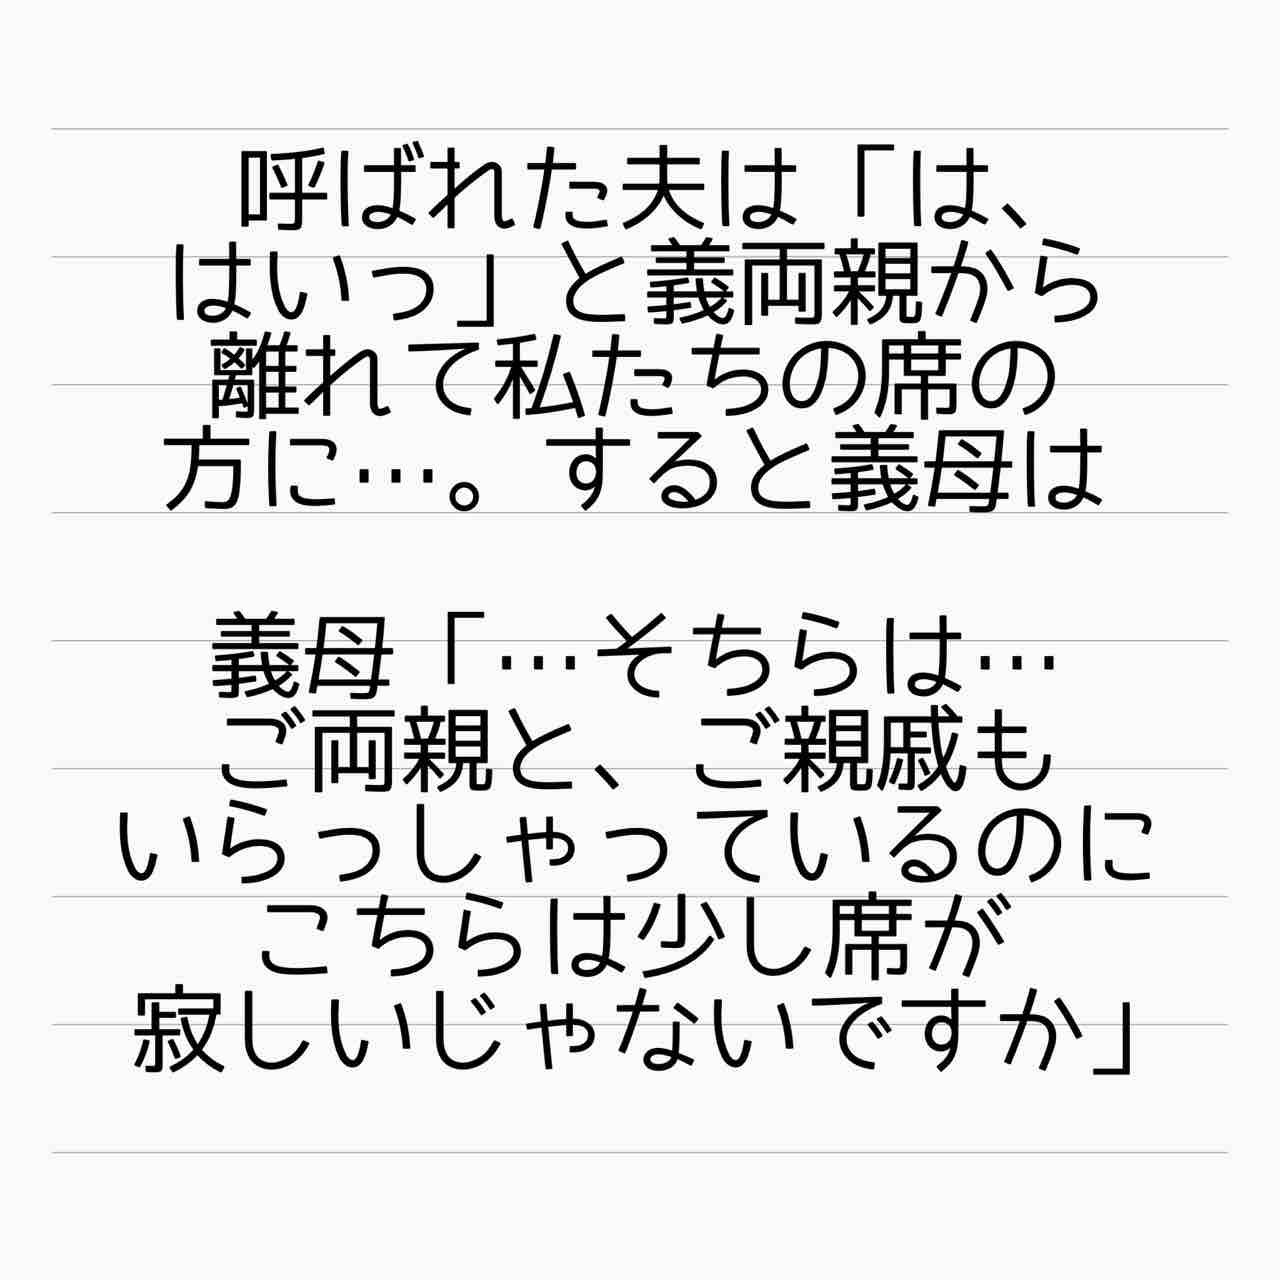 呼ばれた夫は「は、
はいっ」と義両親から
離れて私たちの席の
方に…。すると義母は
義母「…そちらは…
ご両親と、ご親戚も
いらっしゃっているのに
こちらは少し席が
寂しいじゃないですか」